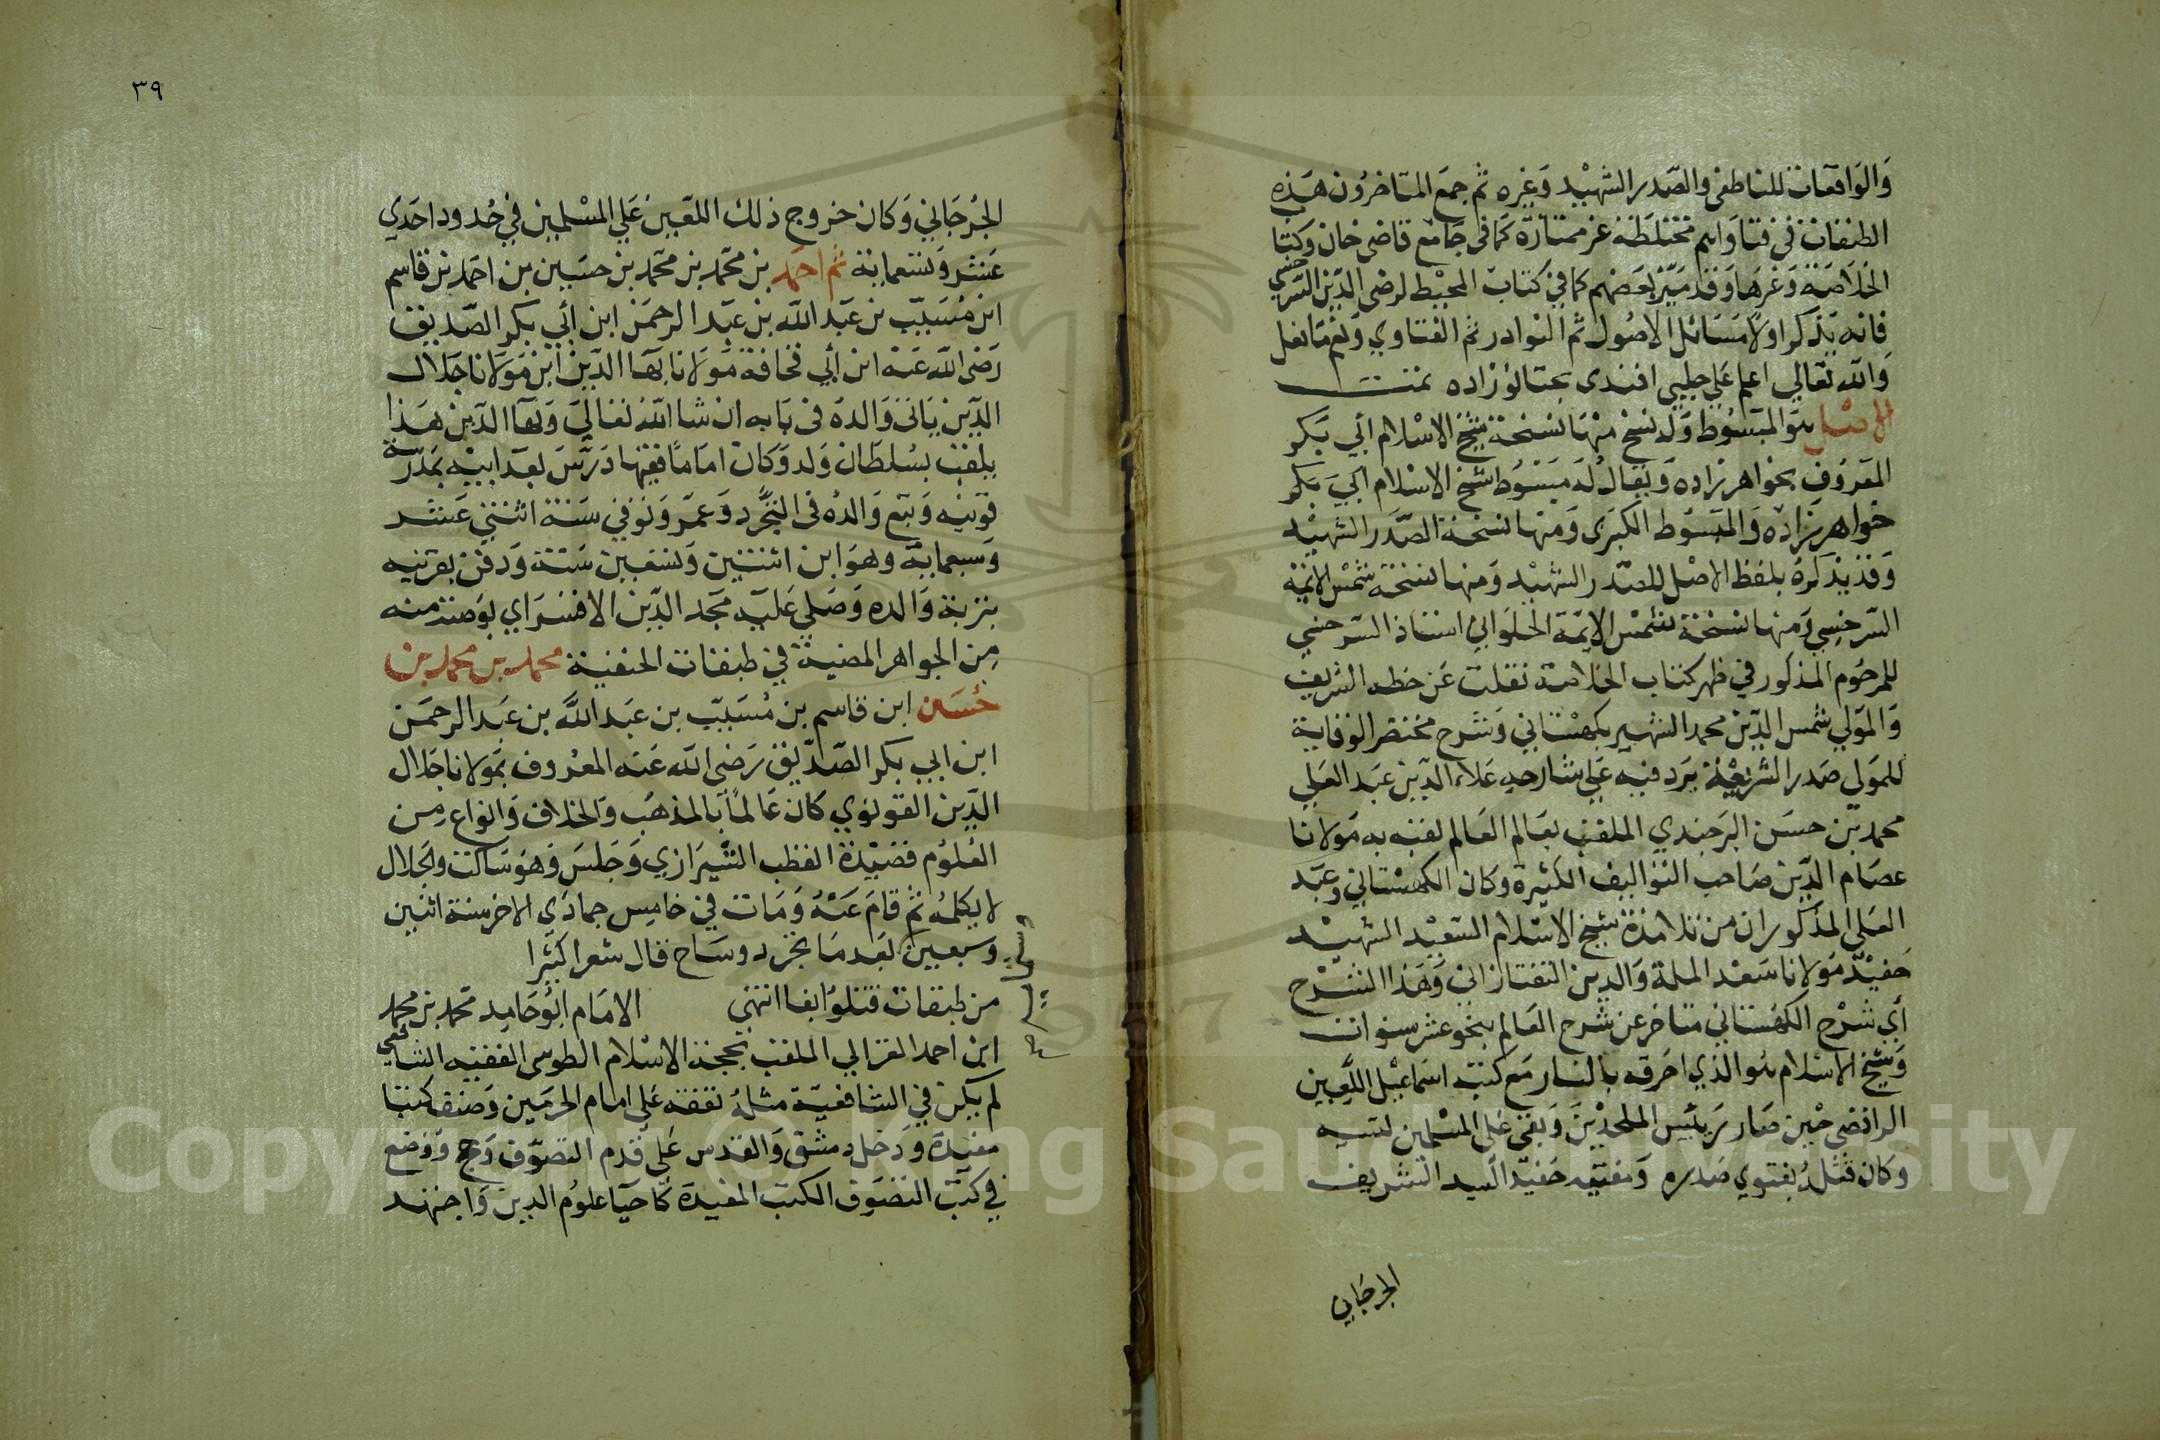 والواقعات للناطفي والصدر الشهيد وغيره ثم جمع المتاخرون هذه
الطبقات في فتاواهم مختلطة غير ممتازة كما في جامع قاضي خان وكتاب
الخلاصة وغيرها وقد ميز بعضهم كما في كتاب المحيط لرضي الدين السرخسي
فانه يذكر اولا مسائل الاصول ثم النوادر ثم الفتاوي ونعم ما فعل
والله تعالي اعلم علي جلبي افندى زاده تمت
الاصل هو المبسوط وله نسخ منها نسخة شيخ الاسلام ابي بكر
المعروف بخواهر زاده ويقال له مبسوط شيخ الاسلام ابي بكر
خواهر زاده والمبسوط الكبرى ومنها نسخة الصدر الشهيد
وقد يذكره بلفظ الاصل للصدر الشهيد ومنها نسخة شمس الايمة
السرخسي ومنها نسخة شمس الايمة الحلواني استاذ السرخسي
للمرحوم المذكور في ظهر كتاب الخلاصة نقلت عن خطه الشريف
والمولي شمس الدين محمد الشهير بكهستاني وشرح مختصر الوقاية
للمولي صدر الشريعة يرد فيه علي شارحه علاء الدين عبد العلي
محمد بن حسن البرجندي الملقب بعالم العالم لقبه به مولانا
عصام الدين صاحب التواليف الكثيرة وكان الكهستاني وعبد
العلي المذكوران من تلامذة شيخ الاسلام السعيد الشهيد
حفيد مولانا سعد الملة والدين التفتازاني وهذا الشرح
أي شرح الكهستاني متاخر عن شرح العالم بنحو عشر سنوات
وشيخ الاسلام هو الذي احرقه بالنار مع كتبه اسماعيل اللعين
الرافضي حين صار رييس الملحدين وبقى على المسلمين لسبيه
وكان قتله بفتوي صدره ومفتيه حفيد السيد الشريف
الجرجاني
٣٩
الجرجاني وكان خروج ذلك اللعين علي المسلمين في حدود احدي
عشر وتسعماية ثم احمد بن محمد بن محمد بن حسين بن احمد بن قاسم
ابن مسيب بن عبد الله بن عبد الرحمن ابن أبي بكر الصديق
رضي الله عنه ابن أبي قحافة مولانا بها الدين ابن مولانا جلال
الدين ياتي والده في بابه ان شا الله تعالى وبها الدين هذا
يلقب بسلطان ولد وكان اماما فقيها درس بعد ابيه بمدرسة
قونيه وتبع والده في التجرد وعمر وتوفي سنة اثنتي عشر
وسبعماية وهو ابن اثنتين وتسعين سنة ودفن بقونيه
بتربة والده وصلى عليه مجد الدين الاقسراي بوصية منه
من الجواهر المضية في طبقات الحنفية محمد بن محمد بن
حسن ابن قاسم بن مسيب بن عبد الله بن عبد الرحمن
ابن ابي بكر الصديق رضى الله عنه المعروف بمولانا جلال
الدين القونوي كان عالما بالمذهب والخلاف وانواع من
العلوم قصيدة القطب الشيرازي وجلس وهو ساكت والجلال
لا يكلمه ثم قام عنه ومات في خامس جمادي الاخر سنة اثنين
وسبعين بعد ما تجرد وساح قال شعرا كثيرا
من طبقات قتلوبغا انتهى الامام ابو حامد محمد بن محمد
ابن احمد الغزالي الملقب بحجة الاسلام الطوسي الفقيه الشافعي
لم يكن في الشافعية مثله تفقه علي امام الحرمين وصنف كتبا
مفيدة ودخل دمشق والقدس علي قدم التصوف وحج ووضع
في كتب التصوف الكتب المفيدة كاحيا علوم الدين واجتهد
Copyright © King Saud University